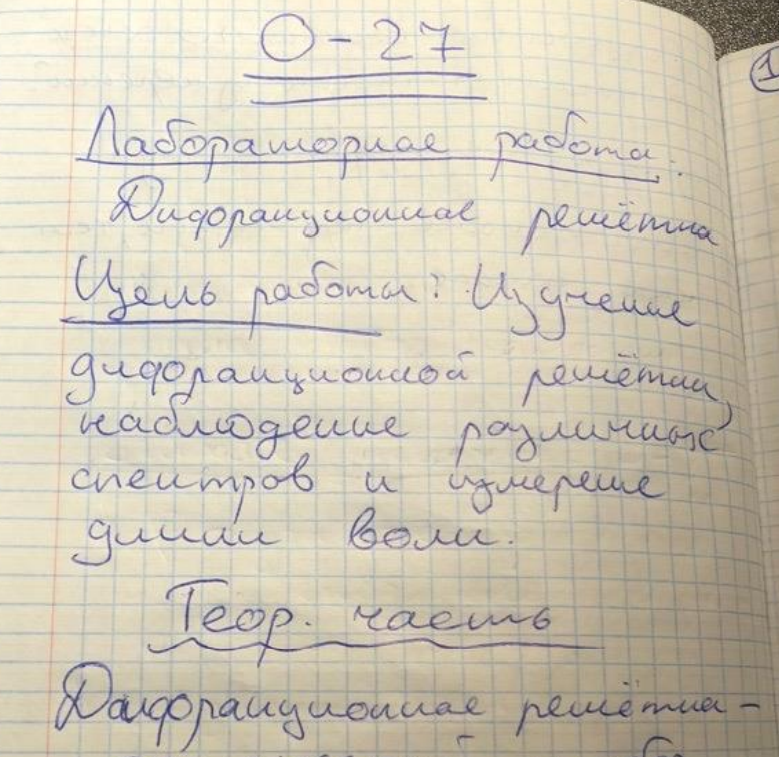 О-27
Лабораторная работа:
Дифракционная решётка
Цель работы: Изучение
дифракционной решётки,
наблюдение различных
спектров и измерение
длин волн.
Теор. часть
Дифракционная решётка -
1